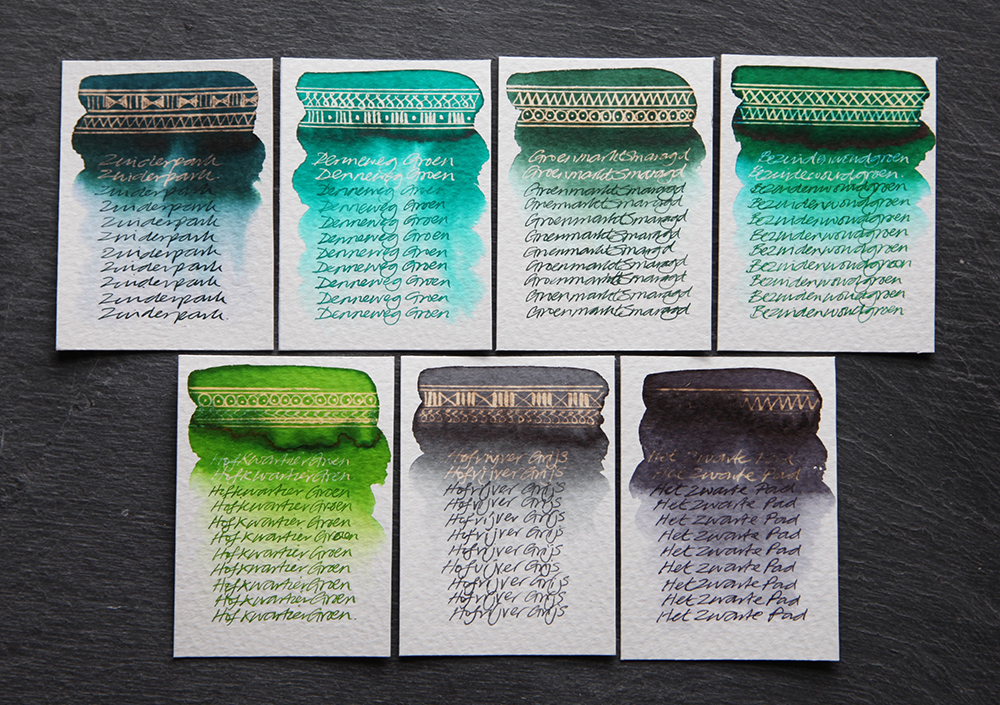 Zuiderpark
Zuiderpark
Zuiderpark
Zuiderpark
Zuiderpark
Zuiderpark
Zuiderpark
Zuiderpark
Zuiderpark
Zuiderpark
Zuiderpark.
Denneweg Groen
Denneweg Groen
Denneweg Groen
Denneweg Groen
Denneweg Groen
Denneweg Groen
Denneweg Groen
Denneweg Groen
Denneweg Groen
Denneweg Groen
Denneweg Groen
Groenmarkt Smaragd
Groenmarkt Smaragd
Groenmarkt Smaragd
Groenmarkt Smaragd
Groenmarkt Smaragd
Groenmarkt Smaragd
Groenmarkt Smaragd
Groenmarkt Smaragd
Groenmarkt Smaragd
Groenmarkt Smaragd
Groenmarkt Smaragd
Bezuidenwoudgroen
Bezuidenwoudgroen
Bezuidenwoudgroen
Bezuidenwoudgroen
Bezuidenwoudgroen
Bezuidenwoudgroen
Bezuidenwoudgroen
Bezuidenwoudgroen
Bezuidenwoudgroen
Bezuidenwoudgroen
Bezuidenwoudgroen
HofKwartier Groen
HofKwartier Groen
HofKwartier Groen
HofKwartier Groen
HofKwartier Groen
HofKwartier Groen
HofKwartier Groen
HofKwartier Groen
HofKwartier Groen
HofKwartier Groen
HofKwartier Groen.
Hofvijver Grijs
Hofvijver Grijs
Hofvijver Grijs
Hofvijver Grijs
Hofvijver Grijs
Hofvijver Grijs
Hofvijver Grijs
Hofvijver Grijs
Hofvijver Grijs
Hofvijver Grijs
Hofvijver Grijs
Het Zwarte Pad
Het Zwarte Pad
Het Zwarte Pad
Het Zwarte Pad
Het Zwarte Pad
Het Zwarte Pad
Het Zwarte Pad
Het Zwarte Pad
Het Zwarte Pad
Het Zwarte Pad
Het Zwarte Pad